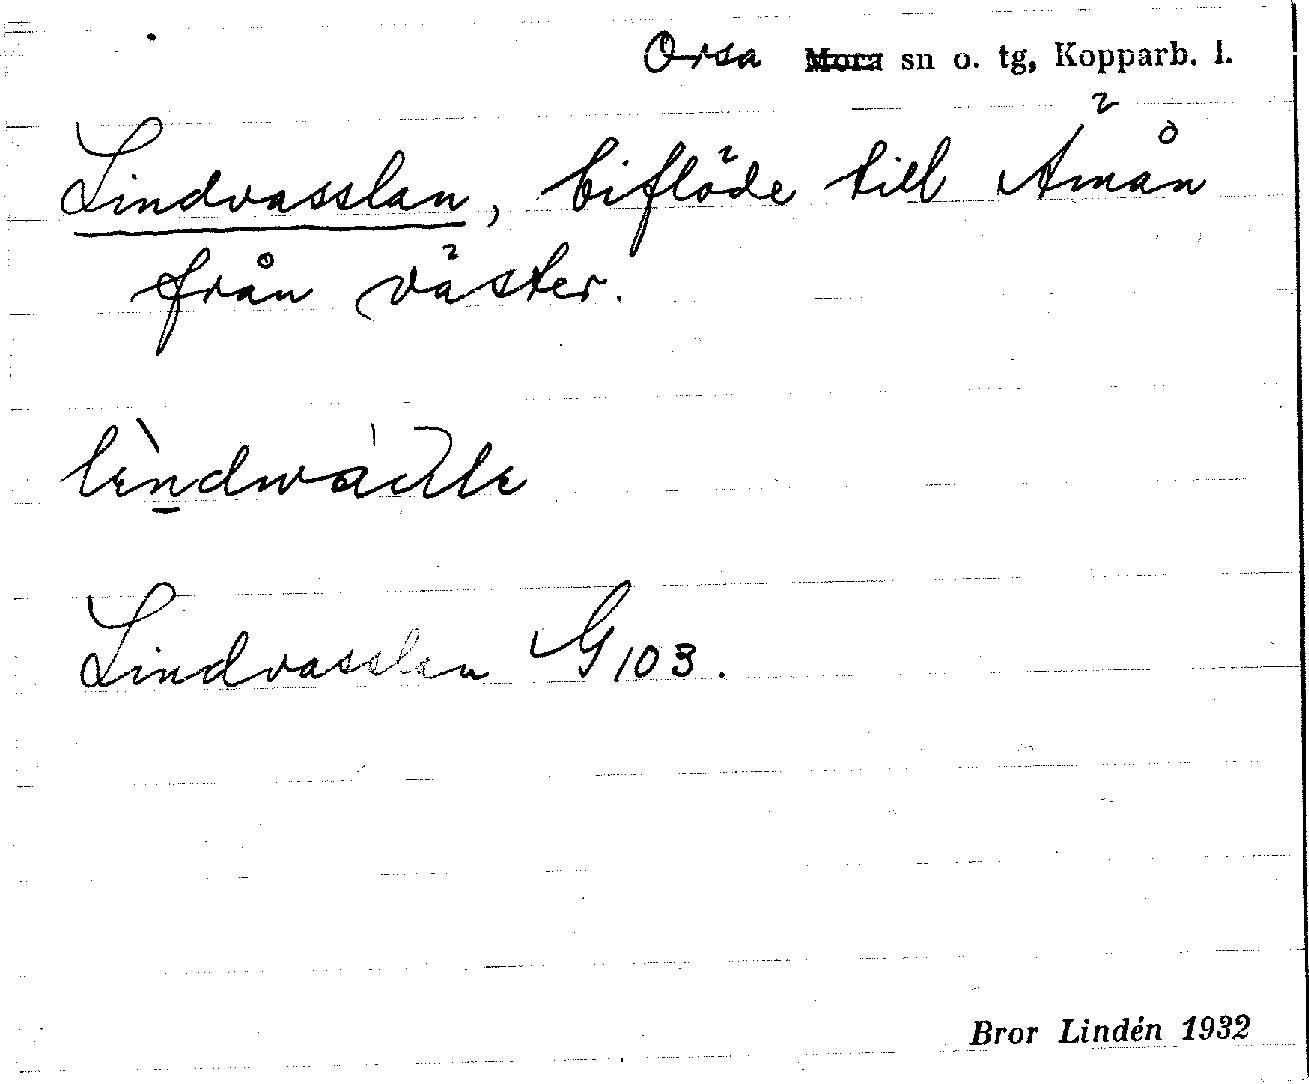 Orsa ~~Mora~~ sn o. tg, Kopparb. l.
Lindvasslan, biflöde till Ämån
från väster.
Lindvasslan G103.
Bror Lindén 1932